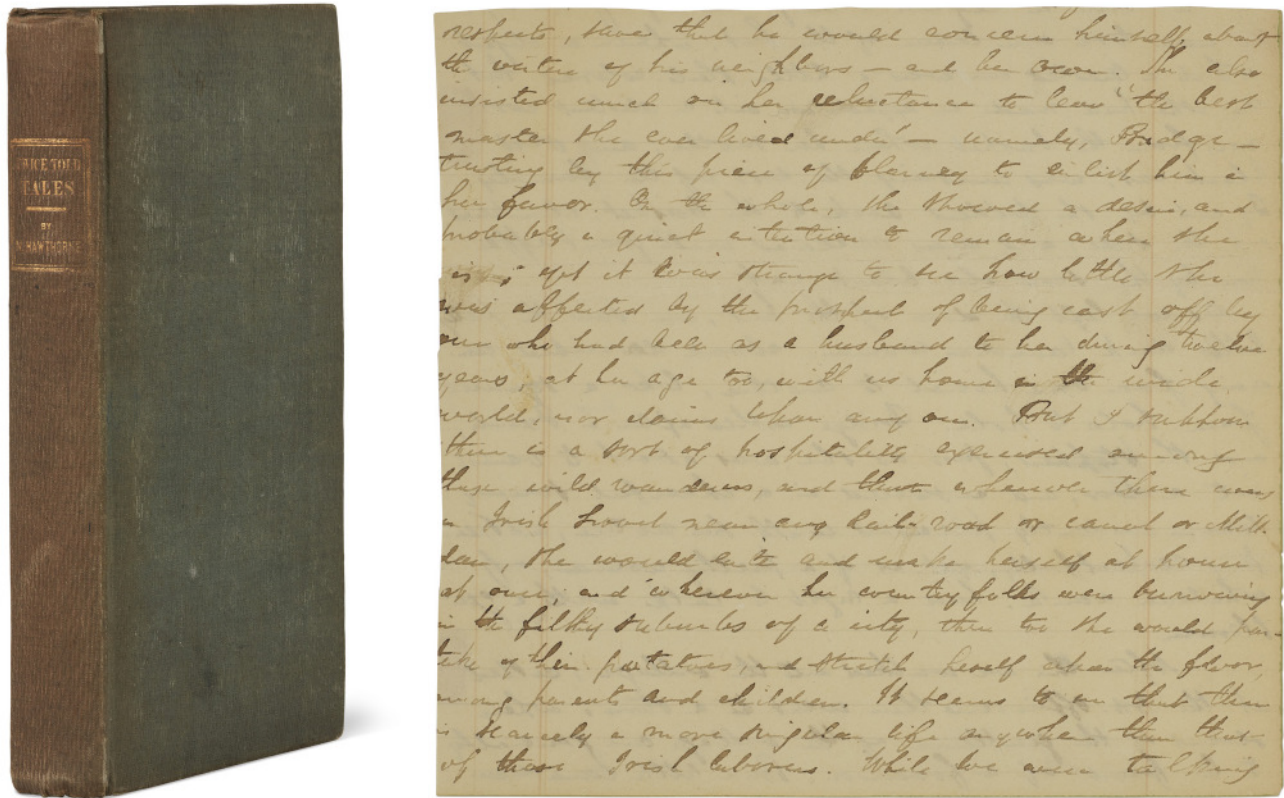 TWICE TOLD
TALES
BY
N. HAWTHORNE
respects, save that he would concern himself about
the virtue of his neighbors — and her own. She also
insisted much on her reluctance to leave "the best
master she ever lived under" — namely, Bridge —
trusting by this piece of blarney to enlist him in
her favor. On the whole, she showed a desire, and
probably a quiet intention to remain where she
is; yet it was strange to see how little she
was affected by the prospect of being cast off by
one who had been as a husband to her during twelve
years; at her age too, with no home in the wide
world, nor claims upon any one. But I suppose
there is a sort of hospitality exercised among
these wild wanderers, and that whenever there was
an Irish hovel near any Rail-road or canal or Mill-
dam, she would enter and make herself at home
at once; and wherever her country folks were burrowing
in the filthy suburbs of a city, there too she would par-
take of their potatoes, and stretch herself upon the floor,
among parents and children. It seems to me that there
is scarcely a more singular life anywhere than that
of these Irish laborers. While we were talking